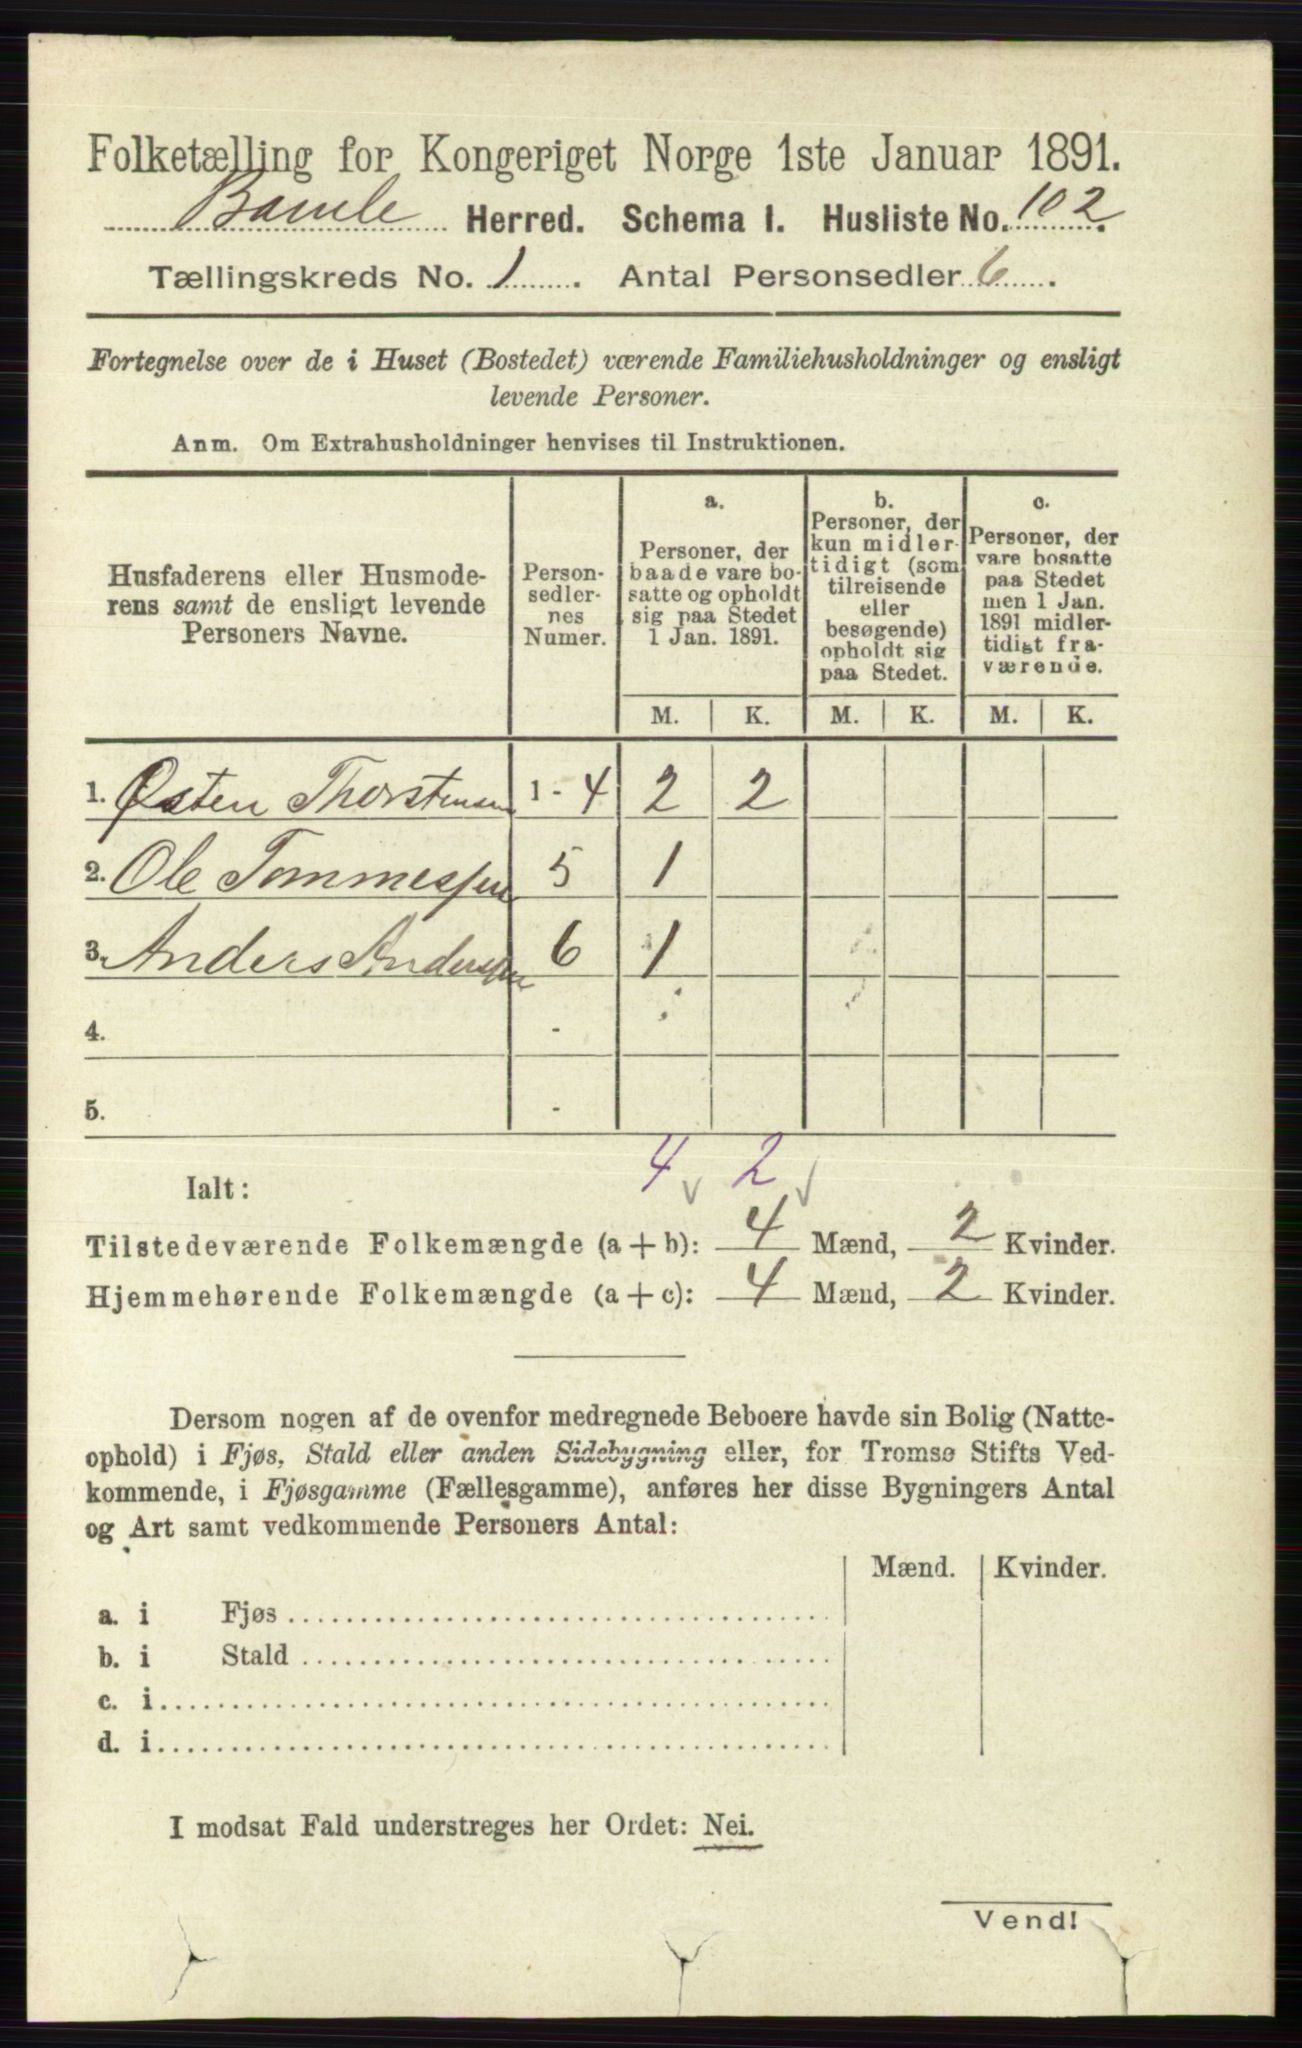 Folketælling for Kongeriget Norge 1ste Januar 1891.
Bamle Herred. Schema I. Husliste No. 102.
Tællingskreds No. 1. Antal Personsedler 6.
Fortegnelse over de i Huset (Bostedet) værende Familiehusholdninger og ensligt
levende Personer.
Anm. Om Extrahusholdninger henvises til Instruktionen.
Husfaderens eller Husmode-
rens samt de ensligt levende
Personers Navne.
Person-
sedler-
nes
Numer.
a.
Personer, der
baade vare bo-
satte og opholdt
sig paa Stedet
1 Jan. 1891.
b.
Personer, der
kun midler-
tidigt (som
tilreisende
eller
besøgende)
opholdt sig
paa Stedet.
c.
Personer, der
vare bosatte
paa Stedet
men 1 Jan.
1891 midler-
tidigt fra-
værende.
M. K. M. K. M. K.
1. Østen Thorstensen 1 - 4 2 2
2. Ole Tommessen 5 1
3. Anders Anderssen 6 1
4. -
5. -
4 2
Ialt:
Tilstedeværende Folkemængde (a + b): 4 Mænd, 2 Kvinder.
Hjemmehørende Folkemængde (a + c): 4 Mænd, 2 Kvinder.
Dersom nogen af de ovenfor medregnede Beboere havde sin Bolig (Natte-
ophold) i Fjøs, Stald eller anden Sidebygning eller, for Tromsø Stifts Ved-
kommende, i Fjøsgamme (Fællesgamme), anføres her disse Bygningers Antal
og Art samt vedkommende Personers Antal:
Mænd. Kvinder.
a. i Fjøs
b. i Stald
c. i
d. i
I modsat Fald understreges her Ordet: Nei.
Vend!